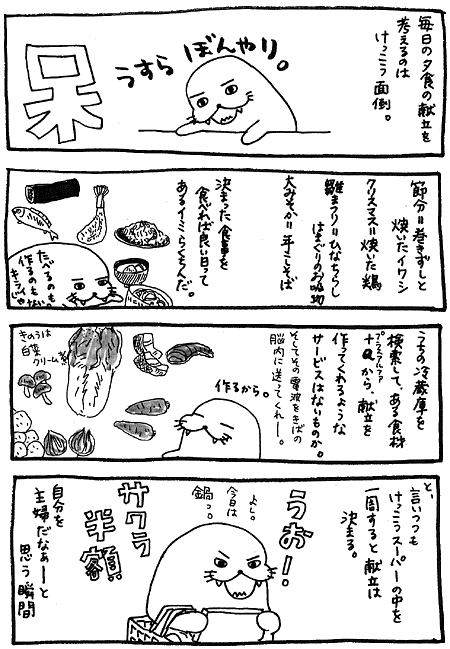 毎日の夕食の献立を
考えるのは
けっこう面倒。
うすらぼんやり。
呆
節分=巻きずしと
焼いたイワシ
クリスマス=焼いた鶏
雛まつり=ひなちらし
はまぐりのお吸物
大みそか=年こしそば
決まった食事を
食べれば良い日って
あるイミらくちんだ。
たべるのも
作るのも
キライじゃ
うちの冷蔵庫を
検索して、ある食材
プラスアルファ
+αから、献立を
作ってくれるような
サービスはないものか。
そしてその電波をきばの
脳内に送ってくれー。
作るから。
きのうは
白菜
クリーム煮
と、
言いつつも
けっこうスーパーの中を
一周すると献立は
決まる。
うおー!
よし。
今日は
鍋っ。
サワラ
半額
自分を
主婦だなぁーと
思う瞬間